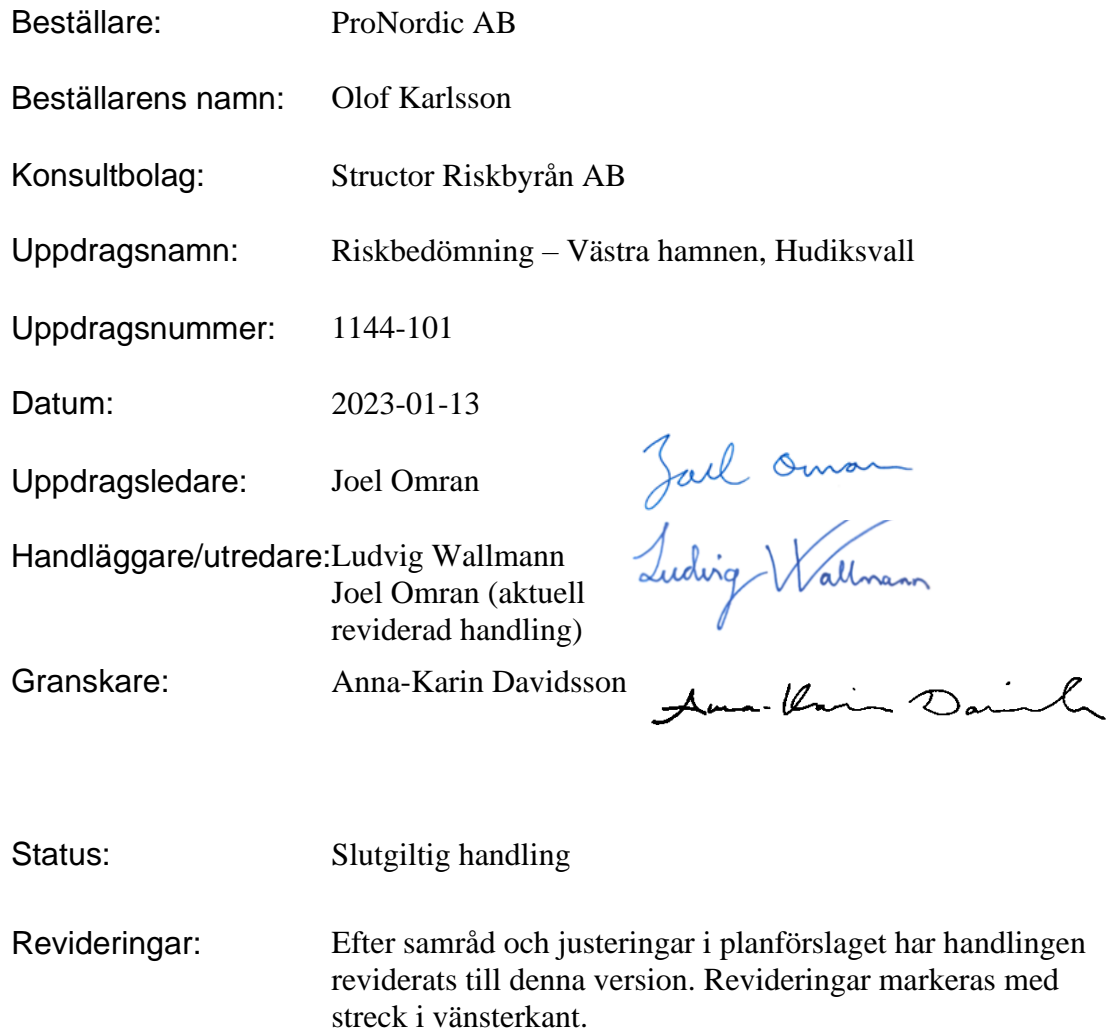 Beställare: ProNordic AB
Beställarens namn: Olof Karlsson
Konsultbolag: Structor Riskbyrån AB
Uppdragsnamn: Riskbedömning – Västra hamnen, Hudiksvall
Uppdragsnummer: 1144-101
Datum: 2023-01-13
Uppdragsledare: Joel Omran Joel Omran
Handläggare/utredare: Ludvig Wallmann Ludvig Wallmann
Joel Omran (aktuell
reviderad handling)
Granskare: Anna-Karin Davidsson Anna-Karin Davidsson
Status: Slutgiltig handling
Revideringar: Efter samråd och justeringar i planförslaget har handlingen
reviderats till denna version. Revideringar markeras med
streck i vänsterkant.